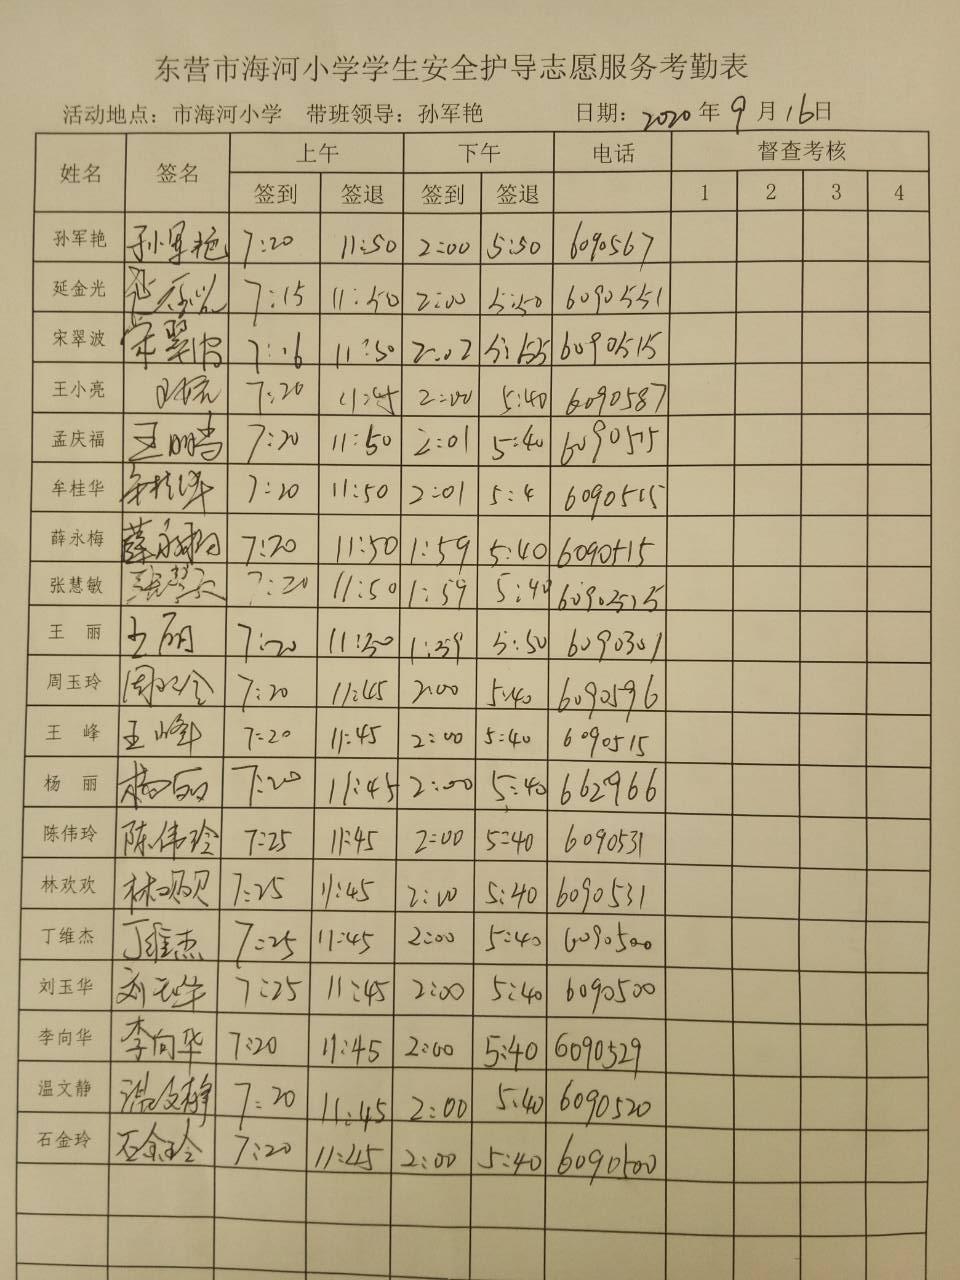 东营市海河小学学生安全护导志愿服务考勤表
活动地点：市海河小学 带班领导：孙军艳 日期：2020年9月16日
姓名 签名 上午 下午 电话 督查考核
签到 签退 签到 签退 1 2 3 4
孙军艳 孙军艳 7:20 11:50 2:00 5:50 6090567
延金光 7:15 11:50 2:00 5:50 6090551
宋翠波 宋翠波 7:16 11:50 2:02 5:55 6090515
王小亮 7:20 11:45 2:00 5:40 6090587
孟庆福 王鹏 7:20 11:50 2:01 5:40 6090515
牟桂华 牟桂华 7:20 11:50 2:01 5:4 6090515
薛永梅 薛永梅 7:20 11:50 1:59 5:40 6090515
张慧敏 张慧敏 7:20 11:50 1:59 5:40 6090515
王丽 王丽 7:20 11:50 1:59 5:50 6090301
周玉玲 周玉玲 7:20 11:45 2:00 5:40 6090596
王峰 王峰 7:20 11:45 2:00 5:40 6090515
杨丽 杨丽 7:20 11:45 2:00 5:40 662966
陈伟玲 陈伟玲 7:25 11:45 2:00 5:40 6090531
林欢欢 林欢欢 7:25 11:45 2:00 5:40 6090531
丁维杰 丁维杰 7:25 11:45 2:00 5:40 6090500
刘玉华 刘玉华 7:25 11:45 2:00 5:40 6090500
李向华 李向华 7:20 11:45 2:00 5:40 6090529
温文静 温文静 7:20 11:45 2:00 5:40 6090520
石金玲 石金玲 7:20 11:45 2:00 5:40 6090500